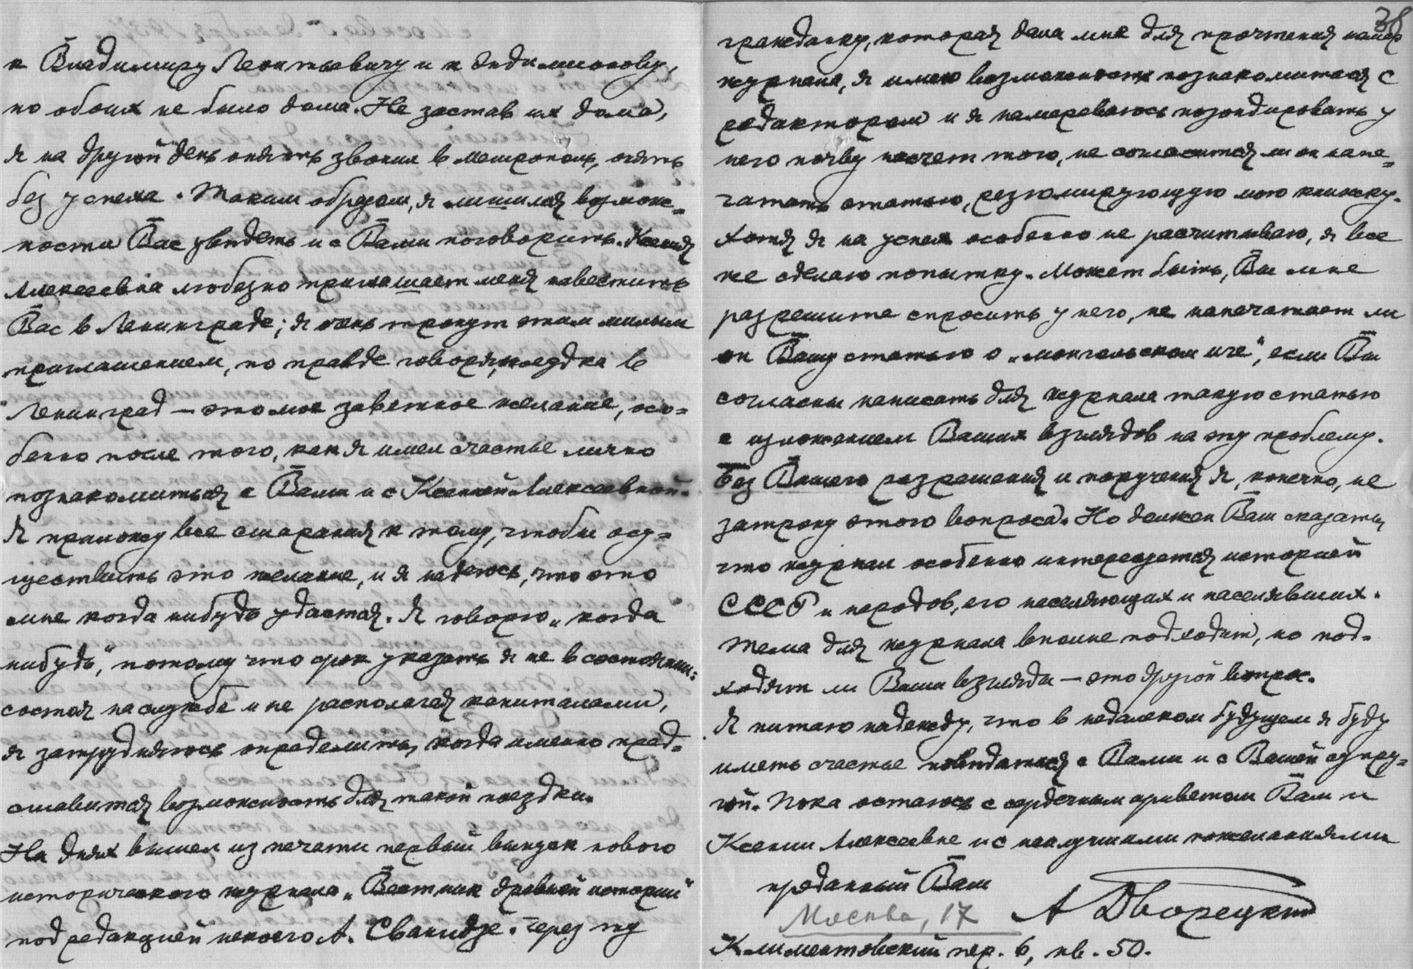 к Владимиру Леонтьевичу и к
но обоих не было дома. Не застав их дома,
я на другой день опять звонил в Метрополь, опять
без успеха. Таким образом, я лишился возмож-
ности Вас увидеть и с Вами поговорить. Ксения
Алексеевна любезно приглашает меня навестить
Вас в Ленинграде; я очень тронут этим милым
приглашением, по правде говоря, поездка в
Ленинград — это мое заветное желание, осо-
бенно после того, как я имел счастье лично
познакомиться с Вами и с Ксенией Алексеевной.
Я приложу все старания к тому, чтобы осу-
ществить это желание, и я надеюсь, что это
мне когда нибудь удастся. Я говорю „когда
нибудь", потому что срок указать я не в состоянии:
состоя на службе и не располагая капиталами,
я затрудняюсь определить, когда именно пред-
ставится возможность для такой поездки.
На днях вышел из печати первый выпуск нового
исторического журнала „Вестник древней истории"
под редакцией некоего А. Сванидзе. Через ту
38
гражданку, которая дала мне для прочтения номер
журнала, я имею возможность познакомиться с
редактором и я намереваюсь позондировать у
него почву насчет того, не согласится ли он напе-
чатать статью, резюмирующую мою книжку.
Хотя я на успех особенно не расчитываю, я все
же сделаю попытку. Может быть, Вы мне
разрешите спросить у него, не напечатает ли
он Вашу статью о „монгольском иге", если Вы
согласны написать для журнала такую статью
с изложением Ваших взглядов на эту проблему.
Без Вашего разрешения и поручения я, конечно, не
затрону этого вопроса. Но должен Вам сказать,
что журнал особенно интересуется историей
СССР и народов, его населяющих и населявших.
Тема для журнала вполне подходит, но под-
ходят ли Ваши взгляды — это другой вопрос.
Я питаю надежду, что в недалеком будущем я буду
иметь счастье повидаться с Вами и с Вашей супру-
гой. Пока остаюсь с сердечным приветом Вам и
Ксении Алексеевне и с наилучшими пожеланиями
преданный Вам
Москва, 17 А Дворецкий
Климентовский пер. 6, кв. 50.